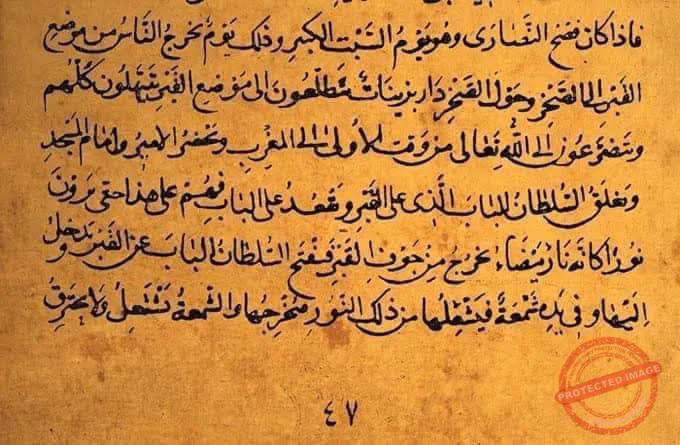 فاذا كان فصح النصارى وهو يوم السبت الكبير وذلك يوم يخرج الناس من موضع
القبر الى الصخر وحول الصخر دار بزينات يتطلعون الى موضع القبر يتهلون كلهم
ويتضرعون الى الله تعالى من وقت الأولى الى المغرب ويحضر الامير وامام المسجد
ويغلق السلطان الباب الذي على القبر ويقعد على الباب فهم على هذا حتى يرون
نورا كانه نار بيضاء يخرج من جوف القبر فيفتح السلطان الباب عن القبر ويدخل
اليها وفي يده شمعة فيشعلها من ذلك النور مخرجها والشمعة تشتعل ولا يحترق
٤٧
PROTECTED IMAGE